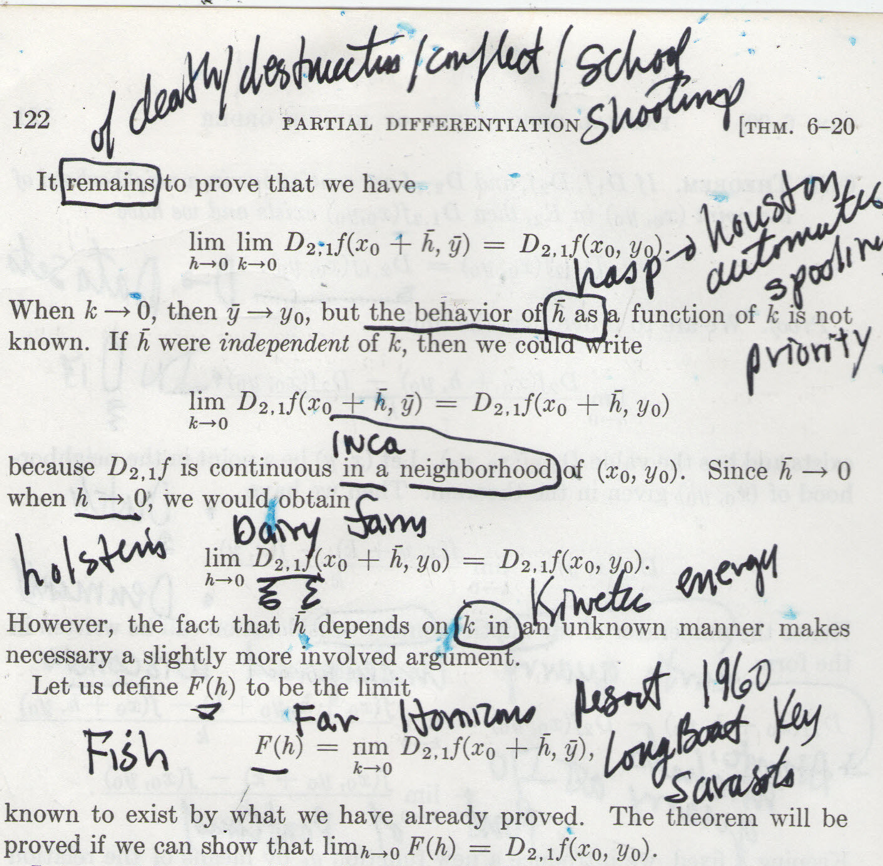 of death/destructin/conflect/School
Shooting
122 PARTIAL DIFFERENTIATION [THM. 6–20
It remains to prove that we have
lim lim D₂,₁f(x₀ + h̄, ȳ) = D₂,₁f(x₀, y₀).
h→0 k→0
hasp → houston
automatic
spooling
priority
When k → 0, then ȳ → y₀, but the behavior of h̄ as a function of k is not
known. If h̄ were independent of k, then we could write
lim D₂,₁f(x₀ + h̄, ȳ) = D₂,₁f(x₀ + h̄, y₀)
k→0
inca
because D₂,₁f is continuous in a neighborhood of (x₀, y₀). Since h̄ → 0
when h → 0, we would obtain
holsteins Dairy farms
lim D₂,₁f(x₀ + h̄, y₀) = D₂,₁f(x₀, y₀).
h→0
Kinetic energy
However, the fact that h̄ depends on k in an unknown manner makes
necessary a slightly more involved argument.
Let us define F(h) to be the limit
Far Horizons Resort 1960
Fish
F(h) = lim D₂,₁f(x₀ + h̄, ȳ),
k→0
LongBoat Key
Sarasota
known to exist by what we have already proved. The theorem will be
proved if we can show that limₕ→₀ F(h) = D₂,₁f(x₀, y₀).